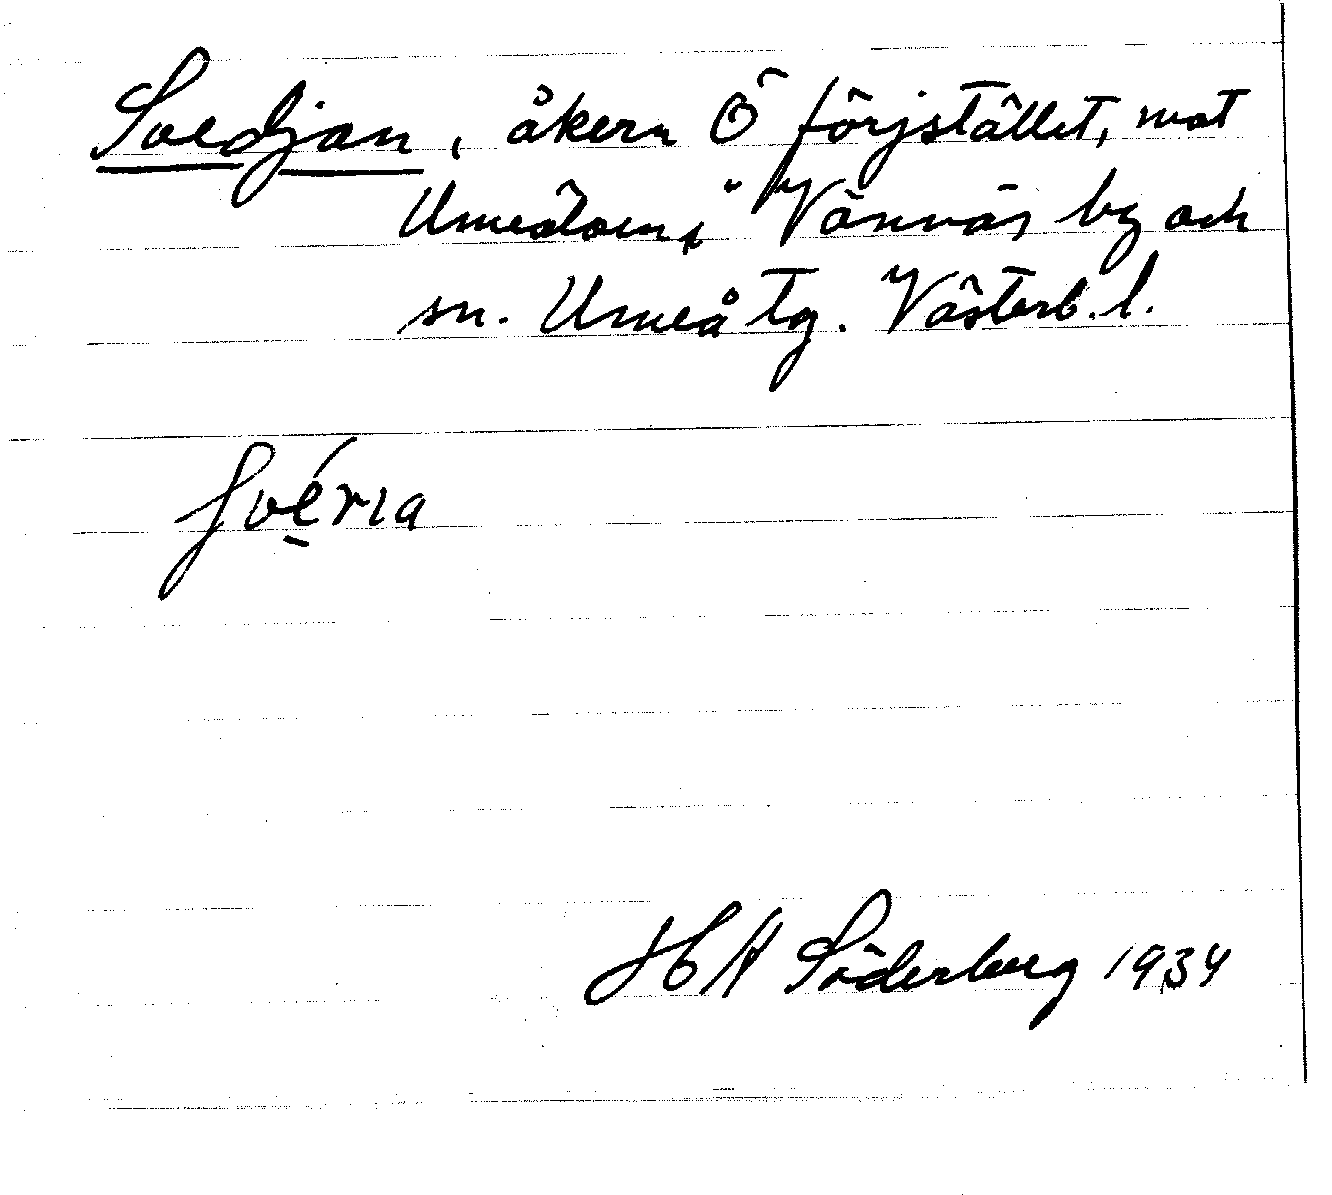 Svedjan, åkern Ö färjstället, mot
Umeälven, i Vännäs by och
sn. Umeå tg. Västerb. l.
svéria
H A Söderberg 1934